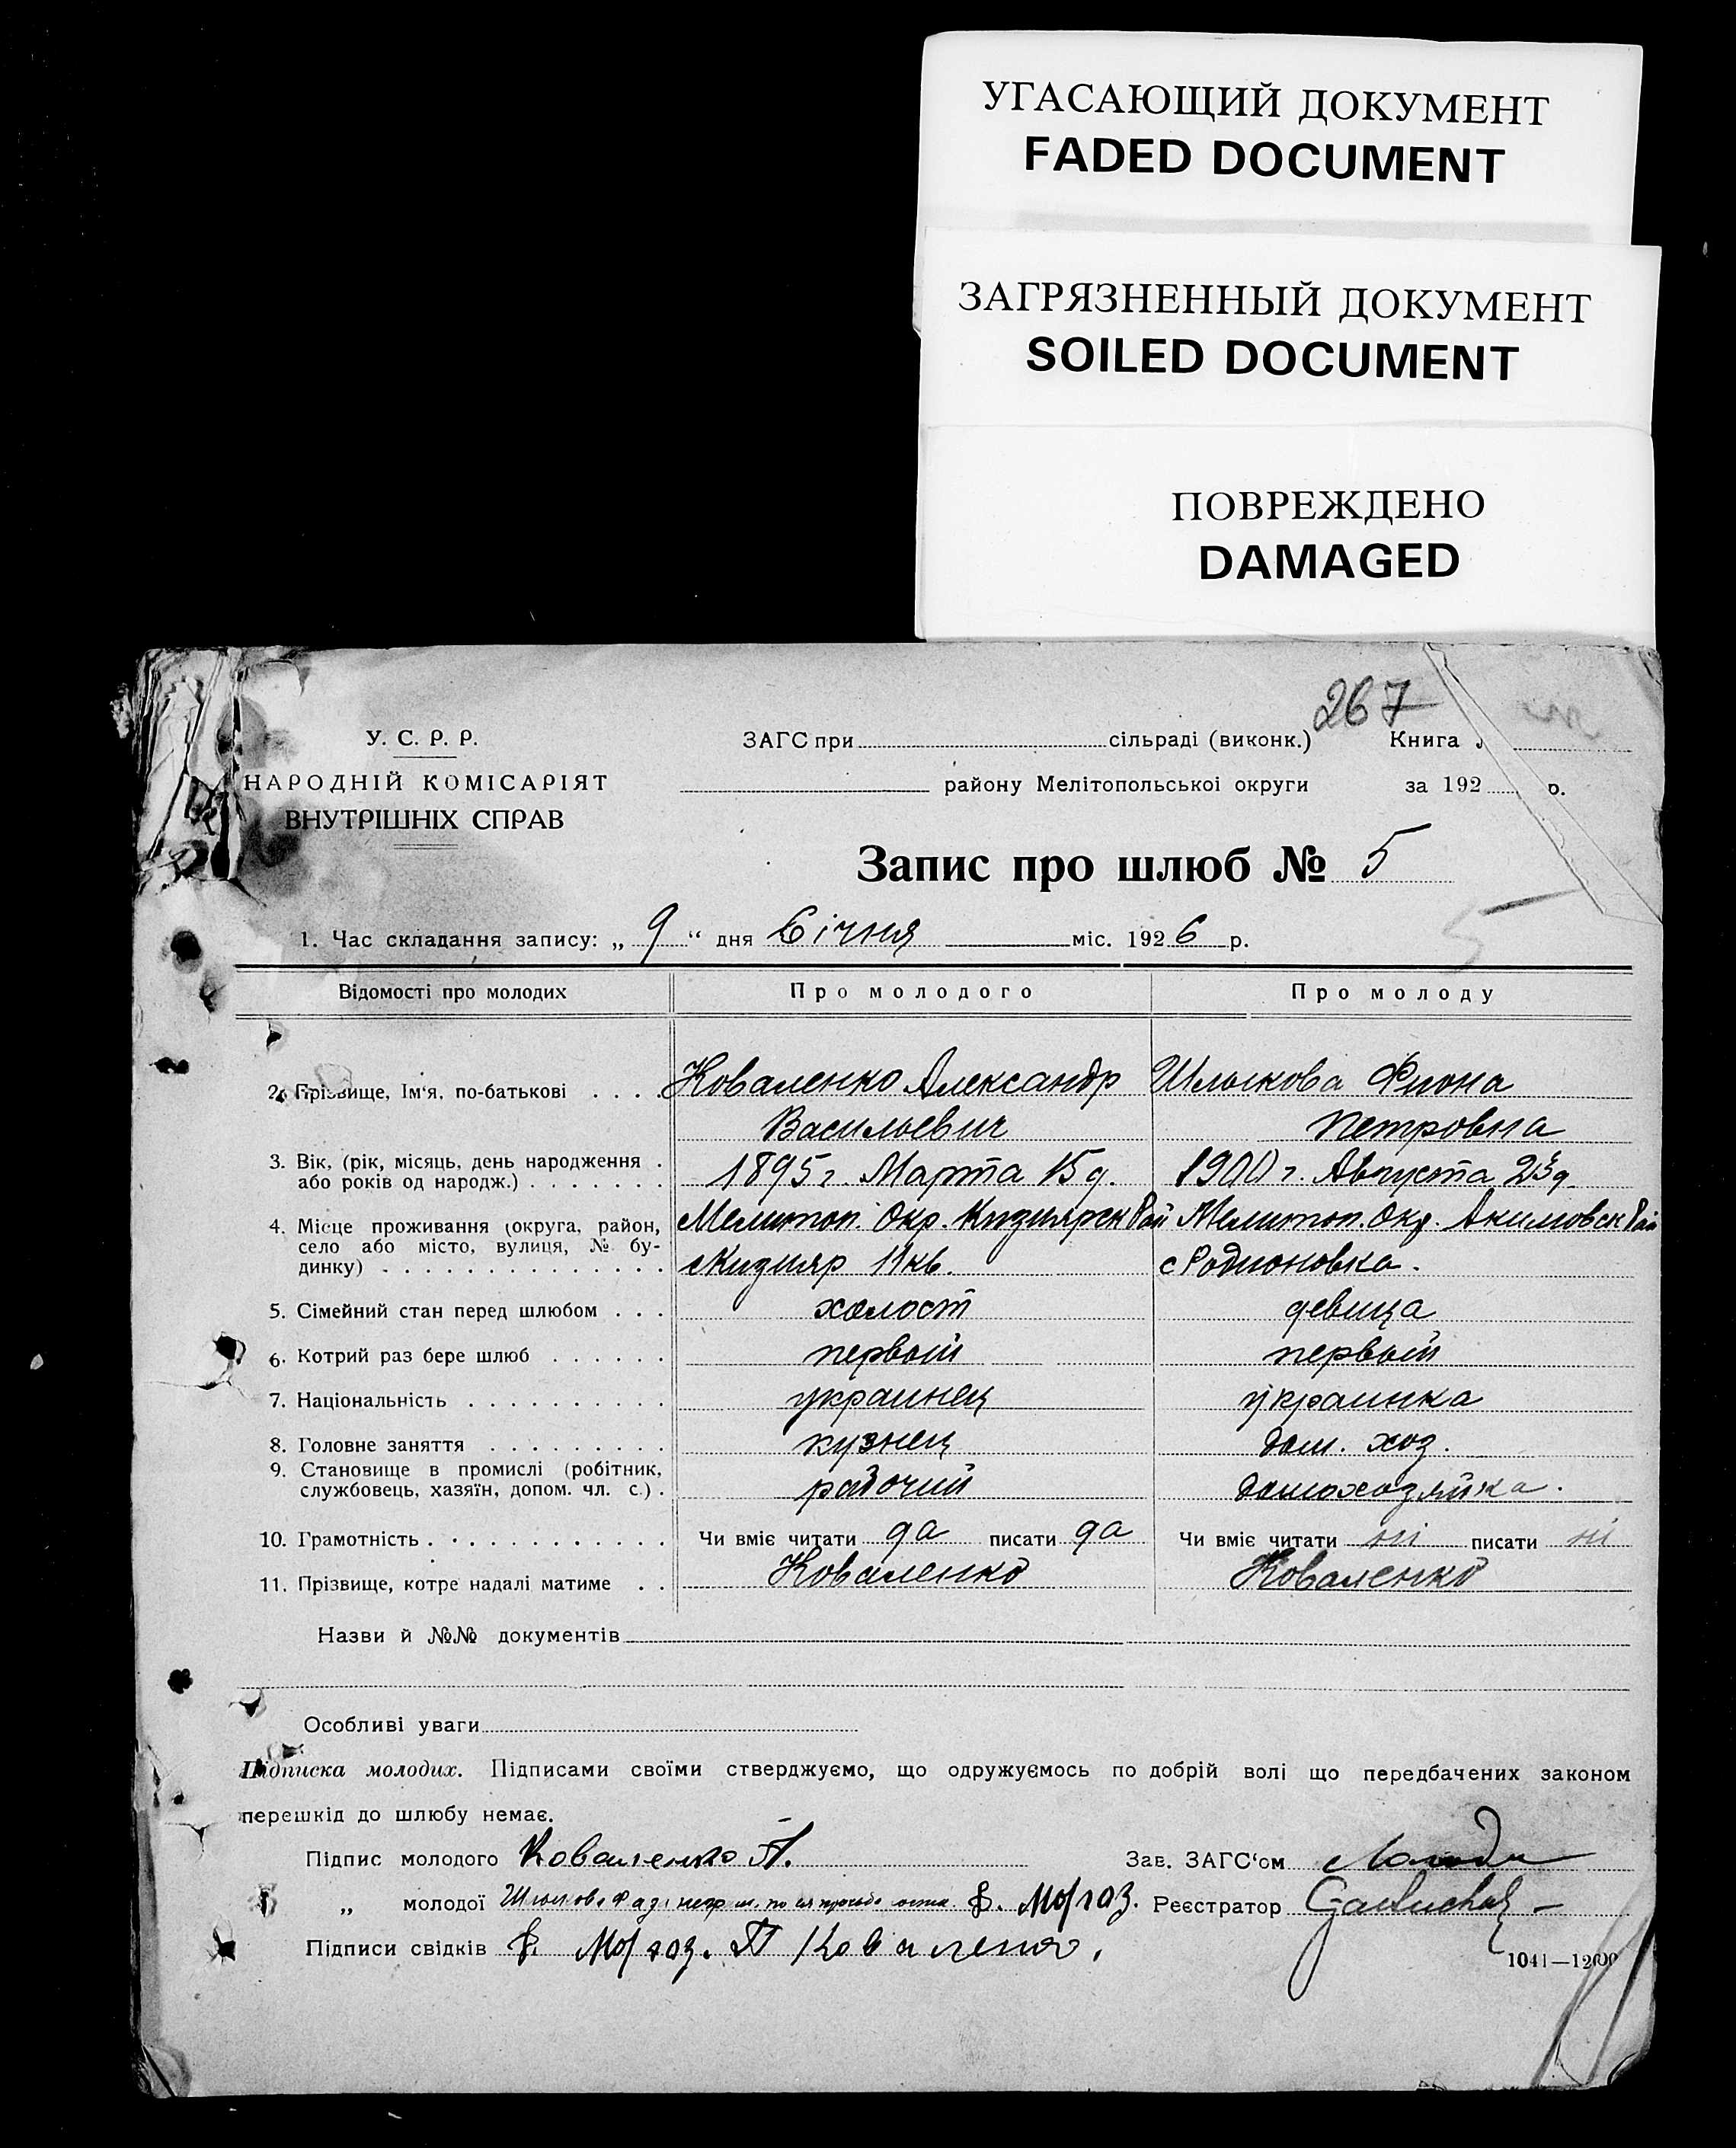 УГАСАЮЩИЙ ДОКУМЕНТ
FADED DOCUMENT
ЗАГРЯЗНЕННЫЙ ДОКУМЕНТ
SOILED DOCUMENT
ПОВРЕЖДЕНО
DAMAGED
267
У. С. Р. Р.
НАРОДНІЙ КОМІСАРІЯТ
ВНУТРІШНІХ СПРАВ
ЗАГС при сільраді (виконк.) Книга
району Мелітопольської округи за 192 р.
Запис про шлюб № 5
5
1. Час складання запису: „ 9 “ дня Січня міс. 1926 р.
Відомості про молодих Про молодого Про молоду
2. Прізвище, Ім‘я, по-батькові Коваленко Александр Шлыкова
Васильевич Петровна
3. Вік, (рік, місяць, день народження або років од народж.) 1895 г. Марта 15 д. 1900 г. Августа 23 д.
4. Місце проживання (округа, район, Мелитоп. Окр. Кизиярск Рай Мелитоп. Окр. Акимовск Рай
село або місто, вулиця, № бу-
динку) с Кизияр 11 кв. с Родионовка.
5. Сімейний стан перед шлюбом холост девица
6. Котрий раз бере шлюб первый первый
7. Національність украинец украинка
8. Головне заняття кузнец дом. хоз.
9. Становище в промислі (робітник,
службовець, хазяїн, допом. чл. с.) рабочий домохозяйка.
10. Грамотність Чи вміє читати да писати да Чи вміє читати ні писати ні
11. Прізвище, котре надалі матиме Коваленко Коваленко
Назви й №№ документів
Особливі уваги
Підписка молодих. Підписами своїми стверджуємо, що одружуємось по добрій волі що передбачених законом
перешкід до шлюбу немає.
Підпис молодого Коваленко А. Зав. ЗАГС‘ом
„ молодої Мороз. Реєстратор
Підписи свідків Мороз. П Коваленко,
1041—12000